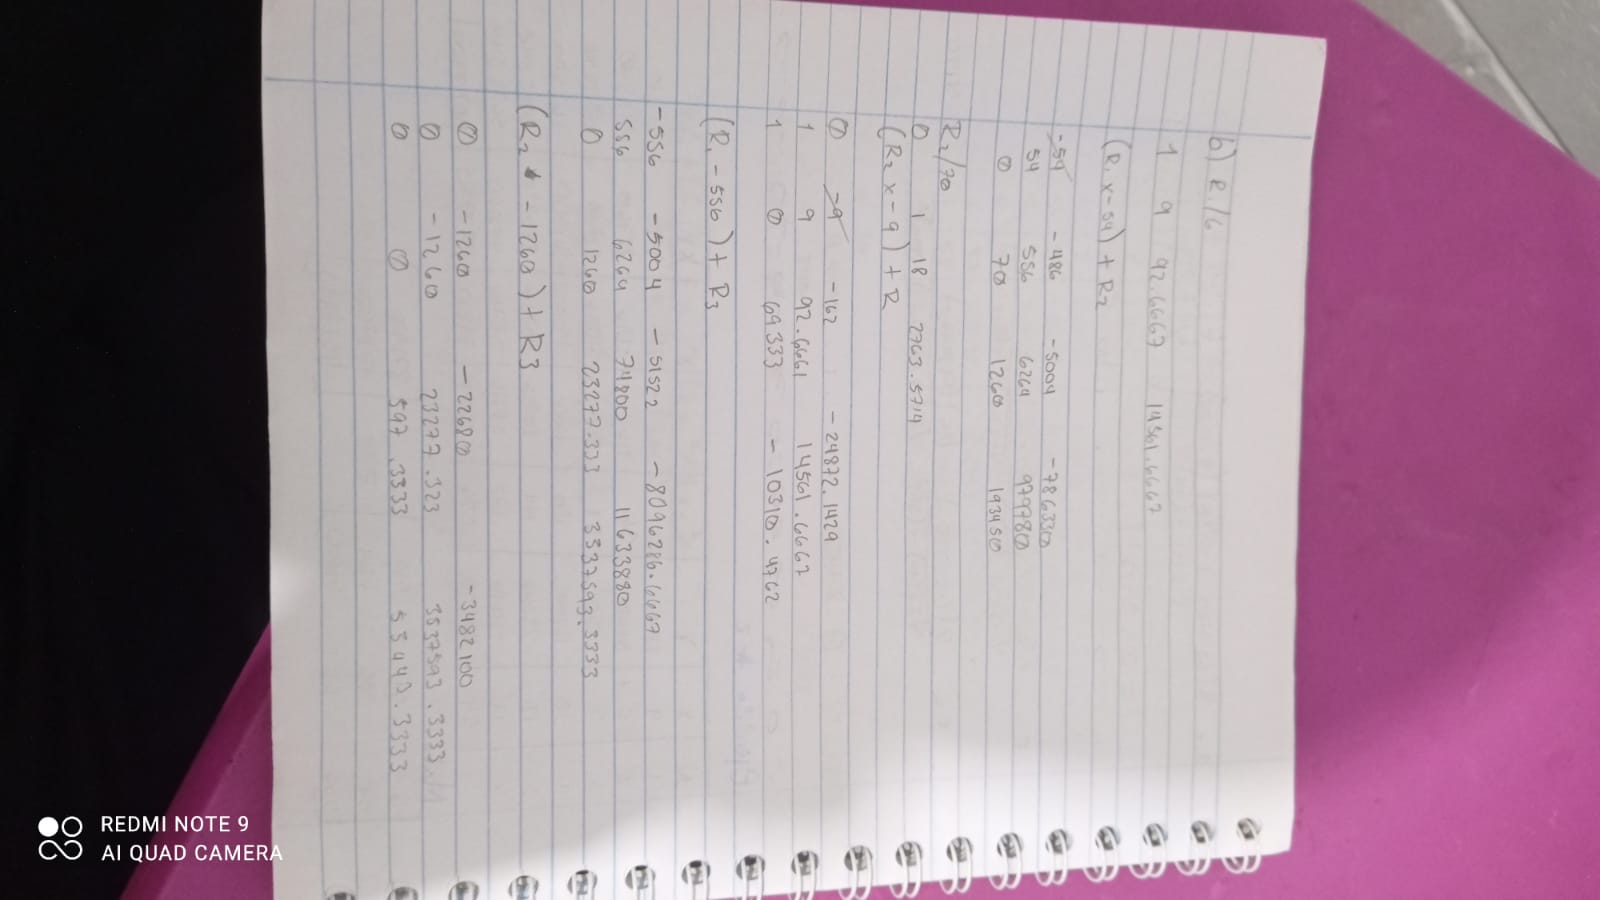 b) R₁/6
1 9 92.6667 14561.6667
(R₁ x-54) + R₂
-54 -486 -5004 -786330
54 556 6264 979780
0 70 1260 193450
R₂/70
0 1 18 2763.5714
(R₂ x-9) + R
0 -9 -162 -24872.1429
1 9 92.6661 14561.6667
1 0 69333 -10310.4762
(R₁ -556) + R₃
-556 -5004 -51522 -8096286.6667
556 6264 74800 11633880
0 1260 23277.333 3537593.3333
(R₂ -1260) + R3
0 -1260 -22680 -3482100
0 -1260 23277.323 3537593.3333
0 0 597.3333 55440.3333
REDMI NOTE 9
AI QUAD CAMERA